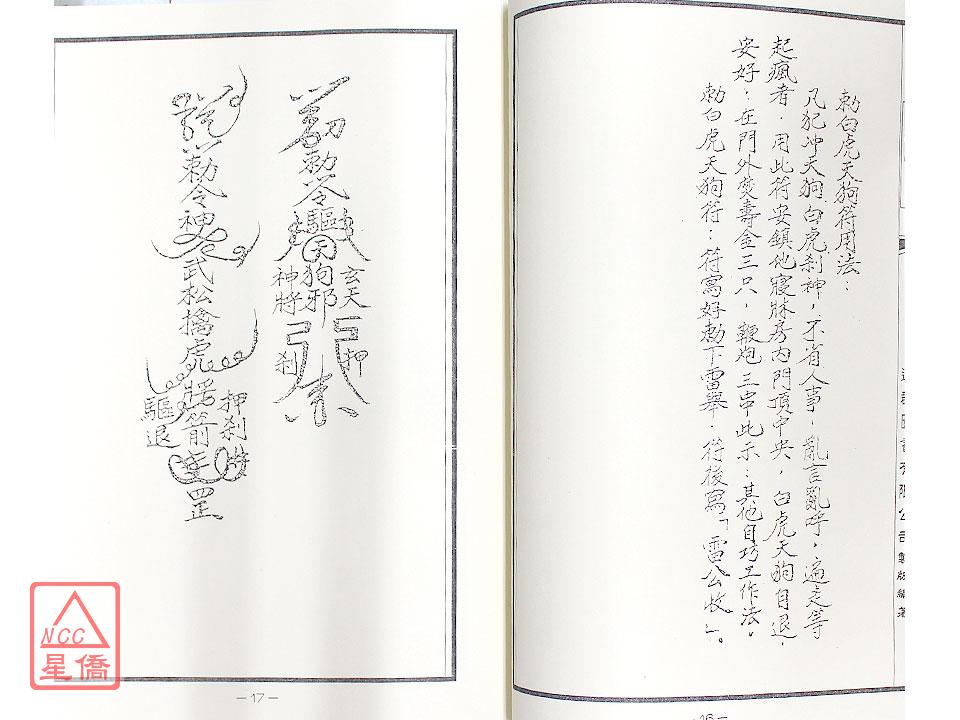 勅白虎天狗符用法：
凡犯冲天狗白虎刹神，不省人事，亂言亂呼，遍走等
起瘋者，用此符安鎮他寢牀房内門頂中央，白虎天狗自退，
安好：在門外焚壽金三只，鞭炮三串此示：其他自巧工作法。
勅白虎天狗符：符寫好勅下雷舉，符後寫「雷公收」。
有限公司製版編著
-16-
勅令驅
天
狗邪
玄天
神將
押
刹
勅令
武松擒虎
箭
罡
押刹
驅退
-17-
NCC
星僑